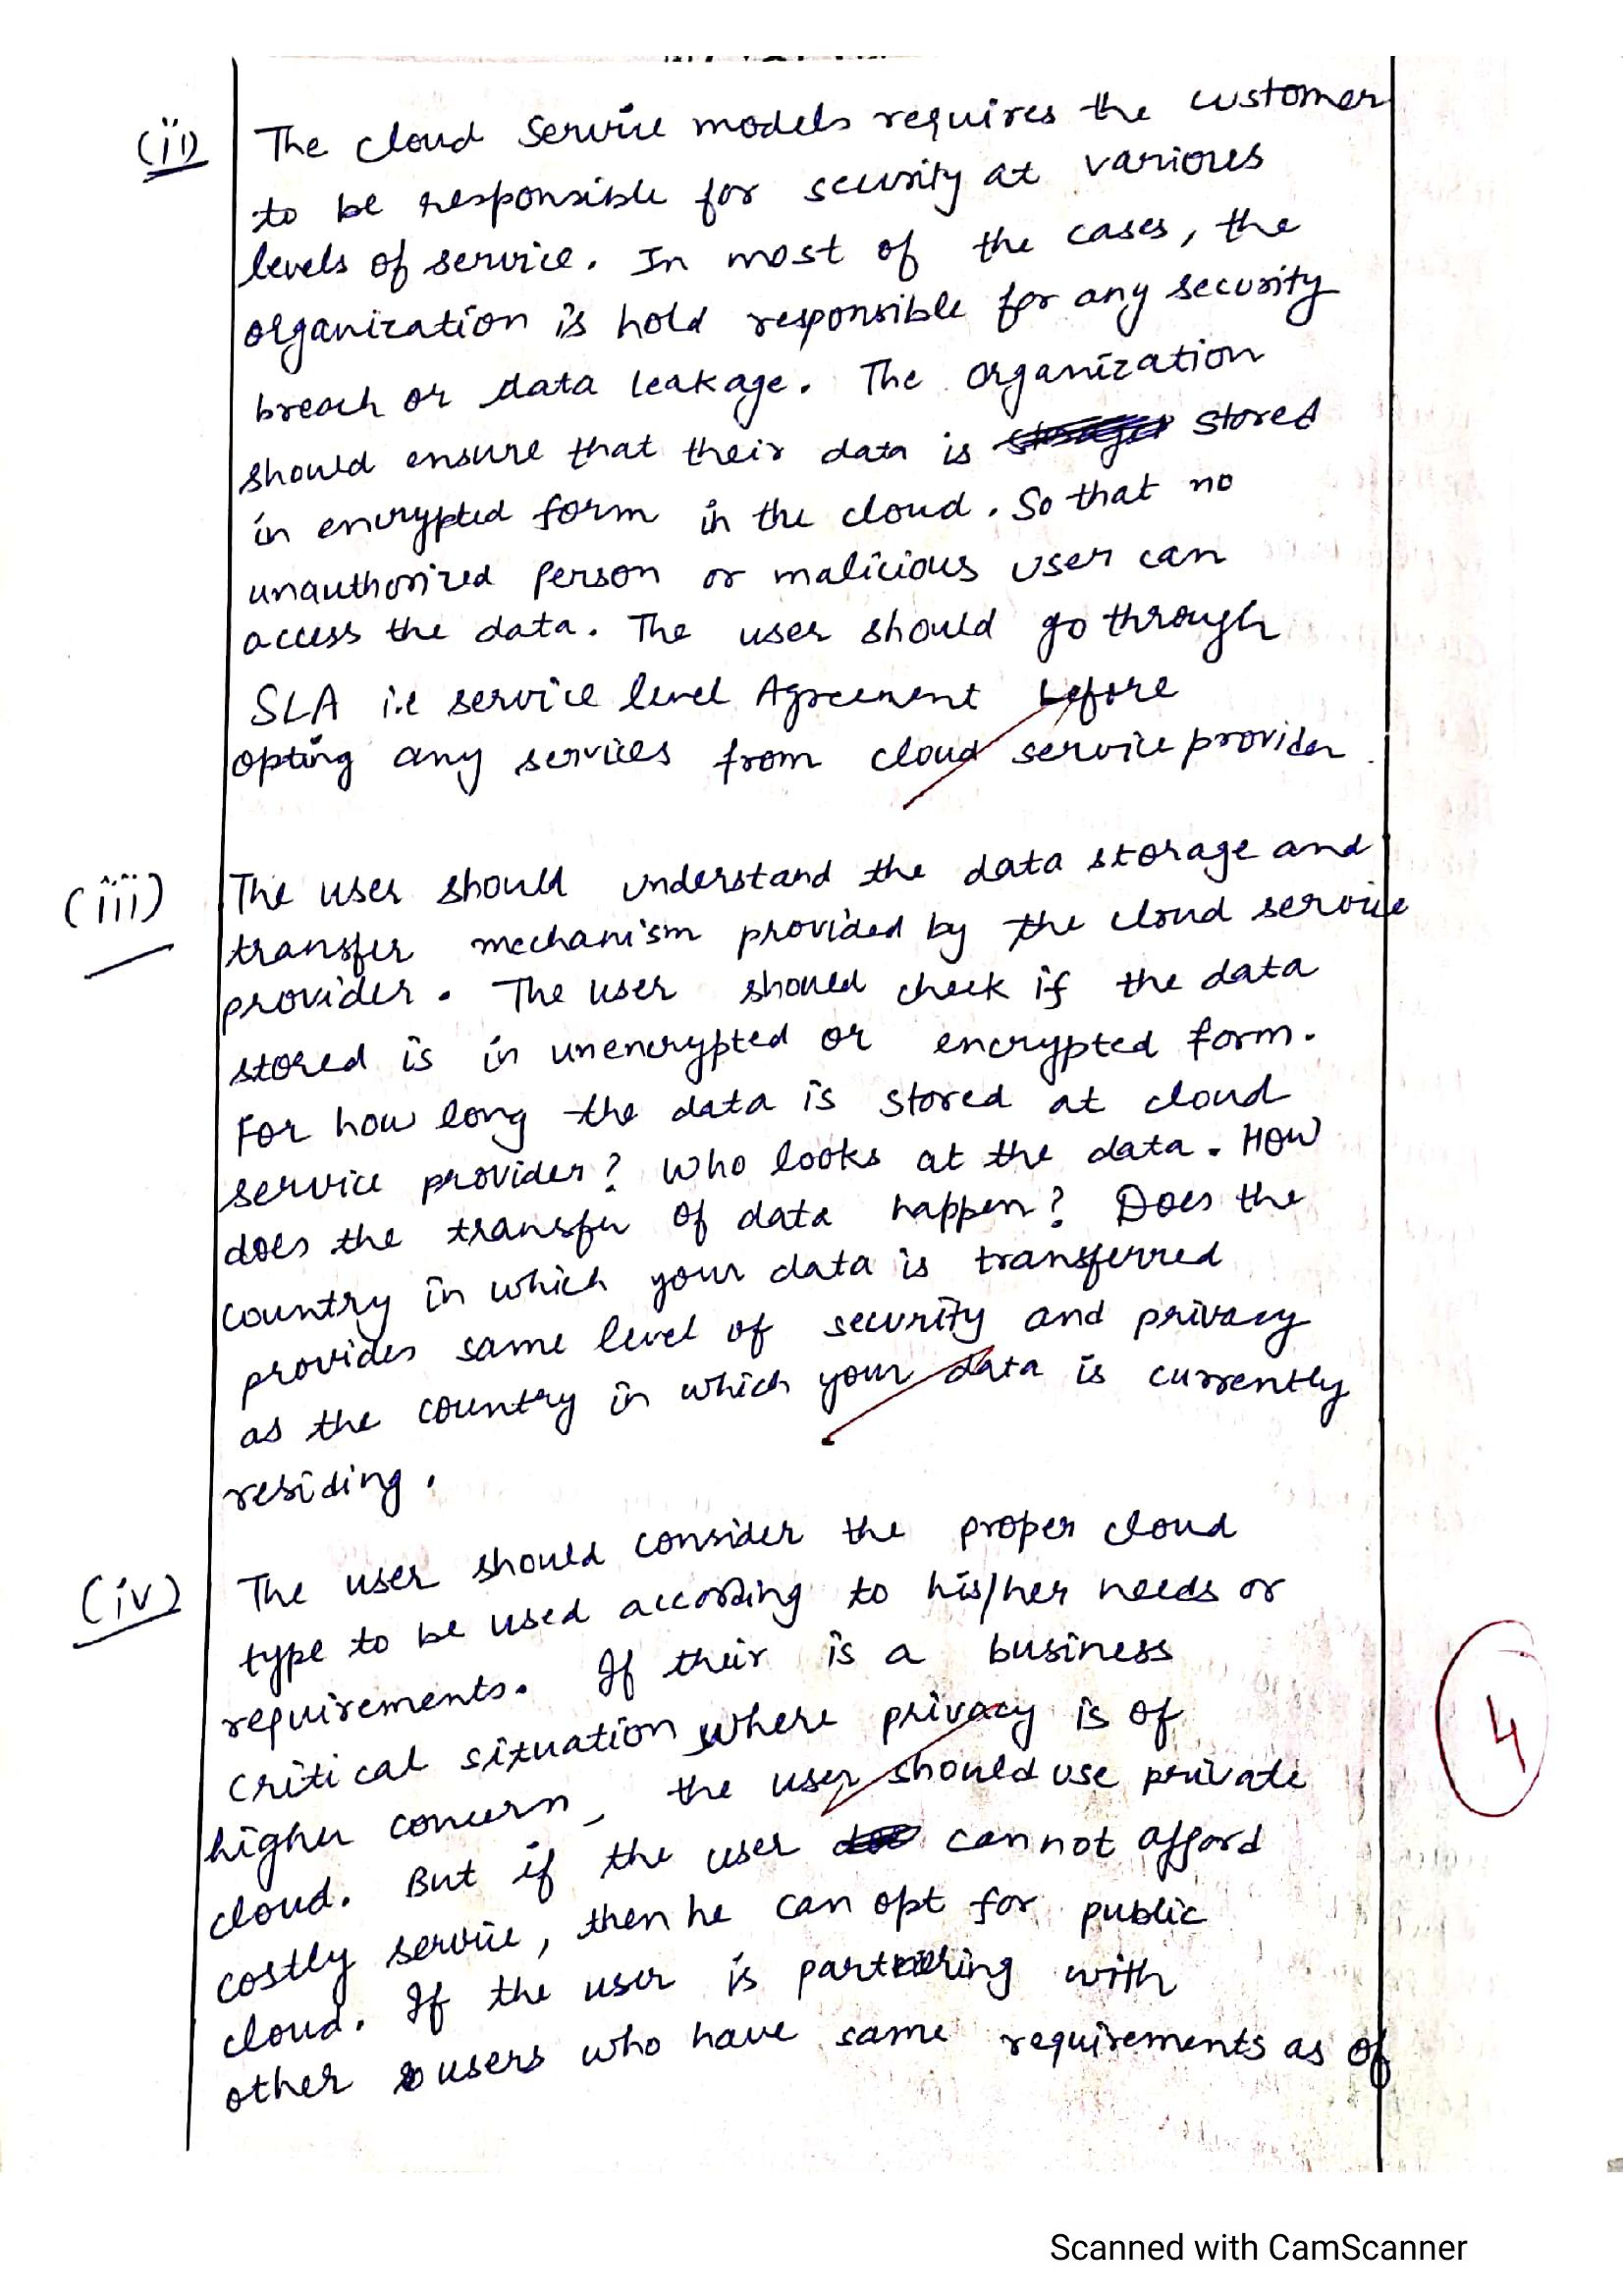 (ii) The cloud service models requires the customer
to be responsible for security at various
levels of service. In most of the cases, the
organization is hold responsible for any security
breach or data leakage. The organization
should ensure that their data is stored
in encrypted form in the cloud. So that no
unauthorized person or malicious user can
access the data. The user should go through
SLA i.e service level Agreement before
opting any services from cloud service provider.
(iii) The user should understand the data storage and
transfer mechanism provided by the cloud service
provider. The user should check if the data
stored is in unencrypted or encrypted form.
For how long the data is stored at cloud
service provider? Who looks at the data. How
does the transfer of data happen? Does the
country in which your data is transferred
provides same level of security and privacy
as the country in which your data is currently
residing.
(iv) The user should consider the proper cloud
type to be used according to his/her needs or
requirements. If their is a business
critical situation where privacy is of
higher concern, the user should use private
cloud. But if the user cannot afford
costly service, then he can opt for public
cloud. If the user is partnering with
other users who have same requirements as of
4
Scanned with CamScanner